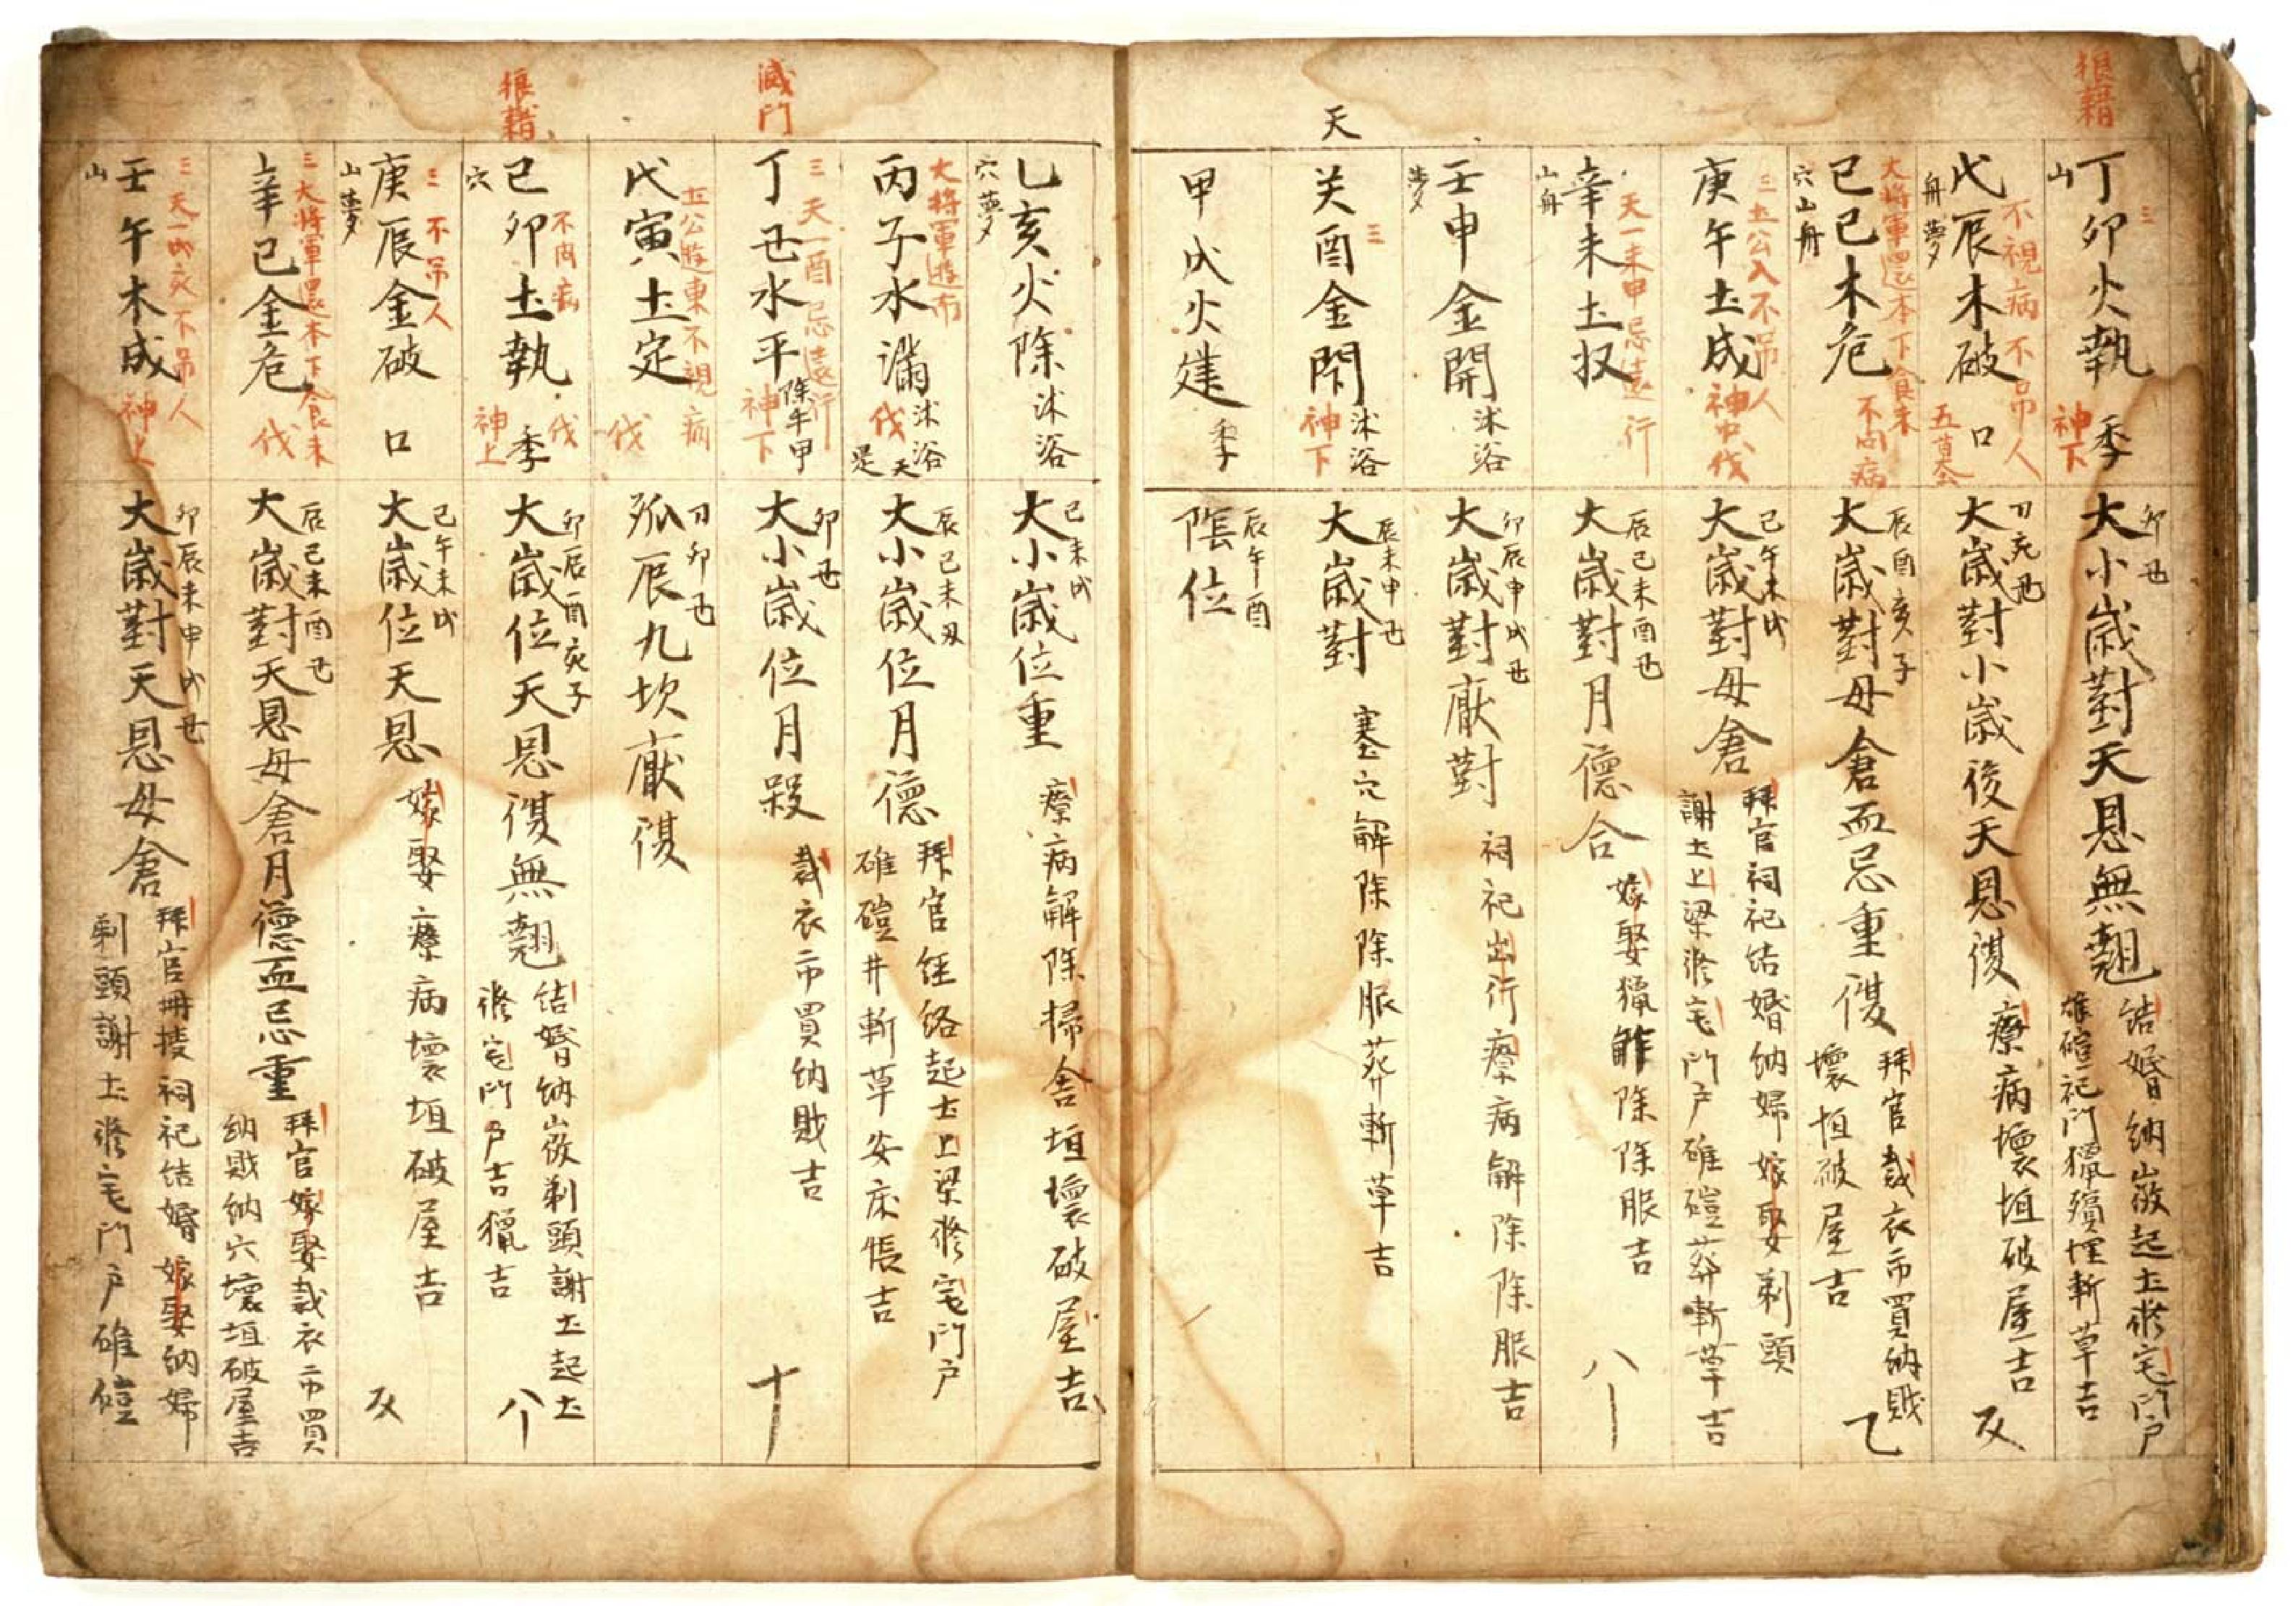 狼藉
三
丁卯火執 季
山
神下
卯也
大小歳對天恩無翹
結婚納徴起土修宅門戸
碓磑祀門獵殯埋斬草吉
不視病不吊人
戊辰木破 口
舟夢
五墓
大歳對小歳後天恩復
療病壞垣破屋吉
大將軍還本下食未
己巳木危
穴山舟
不問病
辰酉亥子
大歳對母倉血忌重復
拜官裁衣市買納財
壞垣破屋吉
三五公入不吊人
庚午土成
神中伐
巳午未戌
大歳對母倉
拜官祠祀結婚納婦嫁娶剃頭
謝土上梁修宅門戸碓磑葬斬草吉
天一未申忌遠行
辛未土収
山舟
辰巳未酉也
大歳對月德合
嫁娶獵解除除服吉
壬申金開 沐浴
夢
卯辰申戌也
大歳對厭對
祠祀出行療病解除除服吉
天
三
癸酉金閇 沐浴
神下
辰未申也
大歳對
塞穴解除除服葬斬草吉
甲戌火建 季
辰午酉
陰位
乙亥火除 沐浴
穴夢
巳未戌
大小歳位重
療病解除掃舍垣壞破屋吉
大將軍遊南
丙子水滿 沐浴
伐
大小歳位月德
拜官經絡起土上梁修宅門戸
碓磑井斬草安床帳吉
滅門
三 天一酉忌遠行
丁丑水平 除手甲
神下
卯也
大小歳位月殺
裁衣市買納財吉
五公遊東不視病
戊寅土定
伐
孤辰九坎厭復
狼藉
不問病
己卯土執 季
穴
伐
神上
卯辰酉亥子
大歳位天恩復無翹
結婚納徴剃頭謝土起土
修宅門戸吉獵吉
三 不吊人
庚辰金破 口
山夢
巳午未戌
大歳位天恩
嫁娶療病壞垣破屋吉
三 大將軍還本下食未
辛巳金危
伐
辰巳未酉也
大歳對天恩母倉月德血忌重
拜官嫁娶裁衣市買
納財納穴壞垣破屋吉
三 天一戌亥不吊人
壬午木成
山
神上
卯辰未申戌也
大歳對天恩母倉
拜官冊授祠祀結婚嫁娶納婦
剃頭謝土修宅門戸碓磑